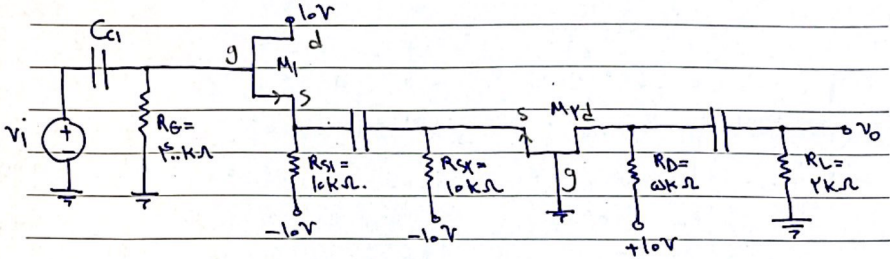 10V
C_C1
g
d
M1
s
vi
+
-
RG=
۴۰۰kΩ
RS1=
10kΩ.
-10V
RS۲=
10kΩ
-10V
s
M۲
d
g
RD=
۵kΩ
+10V
RL=
۲kΩ
vo